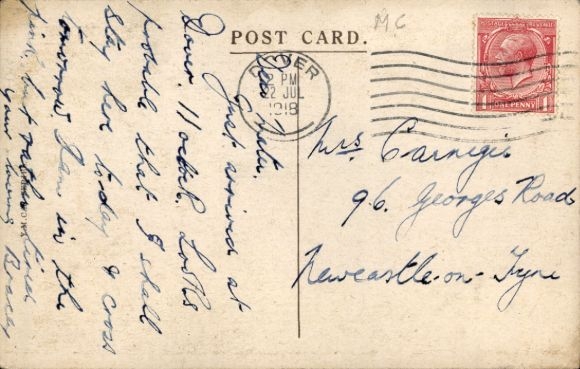 POST CARD.
M C
DOVER
2 PM
22 JUL
1918
POSTAGE REVENUE
ONE PENNY
Mrs. Carnegie
96. Georges Road
Newcastle-on-Tyne
Dear
Just arrived at
Dover. 11 oclock. Looks
probable that I shall
stay here today & cross
tomorrow. I am in the
pink, but rather tired
Your loving